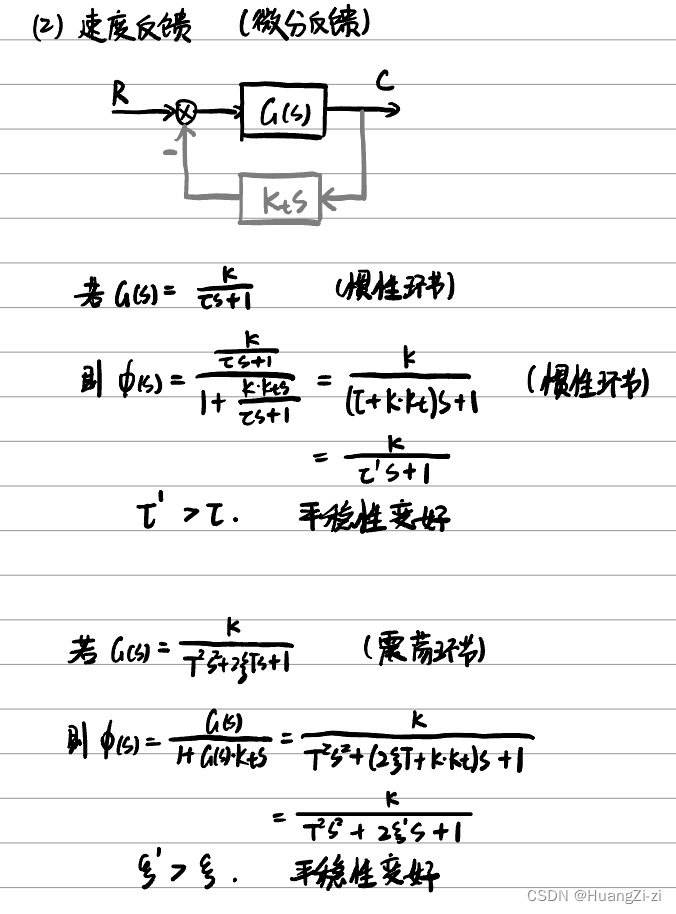 (2) 速度反馈 (微分反馈)
R C
G(s)
-
Kts
若 G(s) = K/(τs+1) (惯性环节)
则 φ(s) = (K/(τs+1))/(1+K·Kts/(τs+1)) = K/((τ+K·Kt)s+1) (惯性环节)
= K/(τ's+1)
τ' > τ. 平稳性变好
若 G(s) = K/(T²s²+2ξTs+1) (震荡环节)
则 φ(s) = G(s)/(1+G(s)·Kts) = K/(T²s²+(2ξT+K·Kt)s+1)
= K/(T²s²+2ξ's+1)
ξ' > ξ. 平稳性变好
CSDN @HuangZi-zi